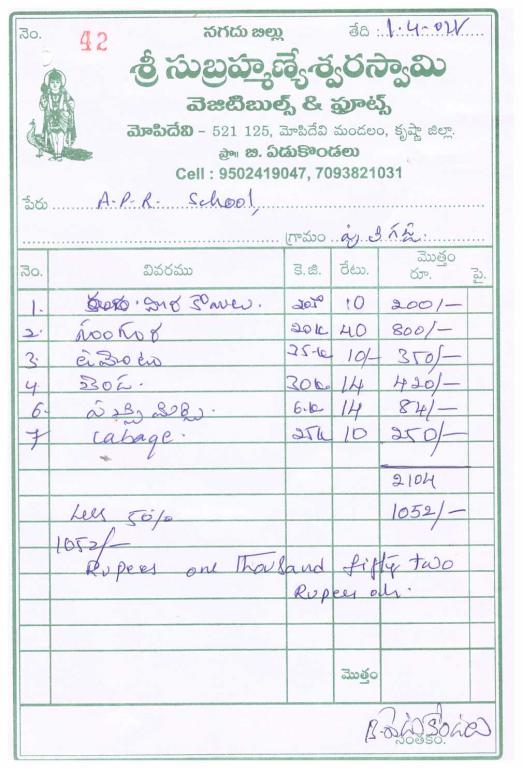 నెం. 42 నగదు బిల్లు తేది :
శ్రీ సుబ్రహ్మణ్యేశ్వరస్వామి
వెజిటిబుల్స్ & ఫ్రూట్స్
మోపిదేవి - 521 125, మోపిదేవి మండలం, కృష్ణా జిల్లా.
ప్రొ॥ బి. ఏడుకొండలు
Cell : 9502419047, 7093821031
పేరు A.P.R. School,
గ్రామం
నెం. వివరము కె.జి. రేటు. మొత్తం రూ. పై.
1. 10 200/-
2. గొంగూర 20k 40 800/-
3. టమోటో 35k 10/- 350/-
4. బెండ. 30k 14 420/-
6. పచ్చి మిర్చి 6.k 14 84/-
7 Cabage. 25k 10 250/-
2104
Less 50% 1052/-
1052/-
Rupees one Thousand fifty two
Rupees
మొత్తం
B. ఏడుకొండలు
సంతకం.